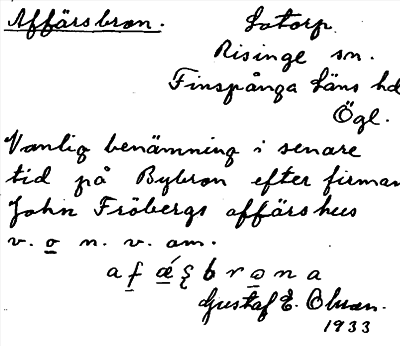 Affärsbron.
Lotorp.
Risinge sn.
Finspånga läns hd
Ögl.
Vanlig benämning i senare
tid på Bybron efter firman
John Fröbergs affärshus
v. o n. v. om.
Gustaf E. Olsson.
1933